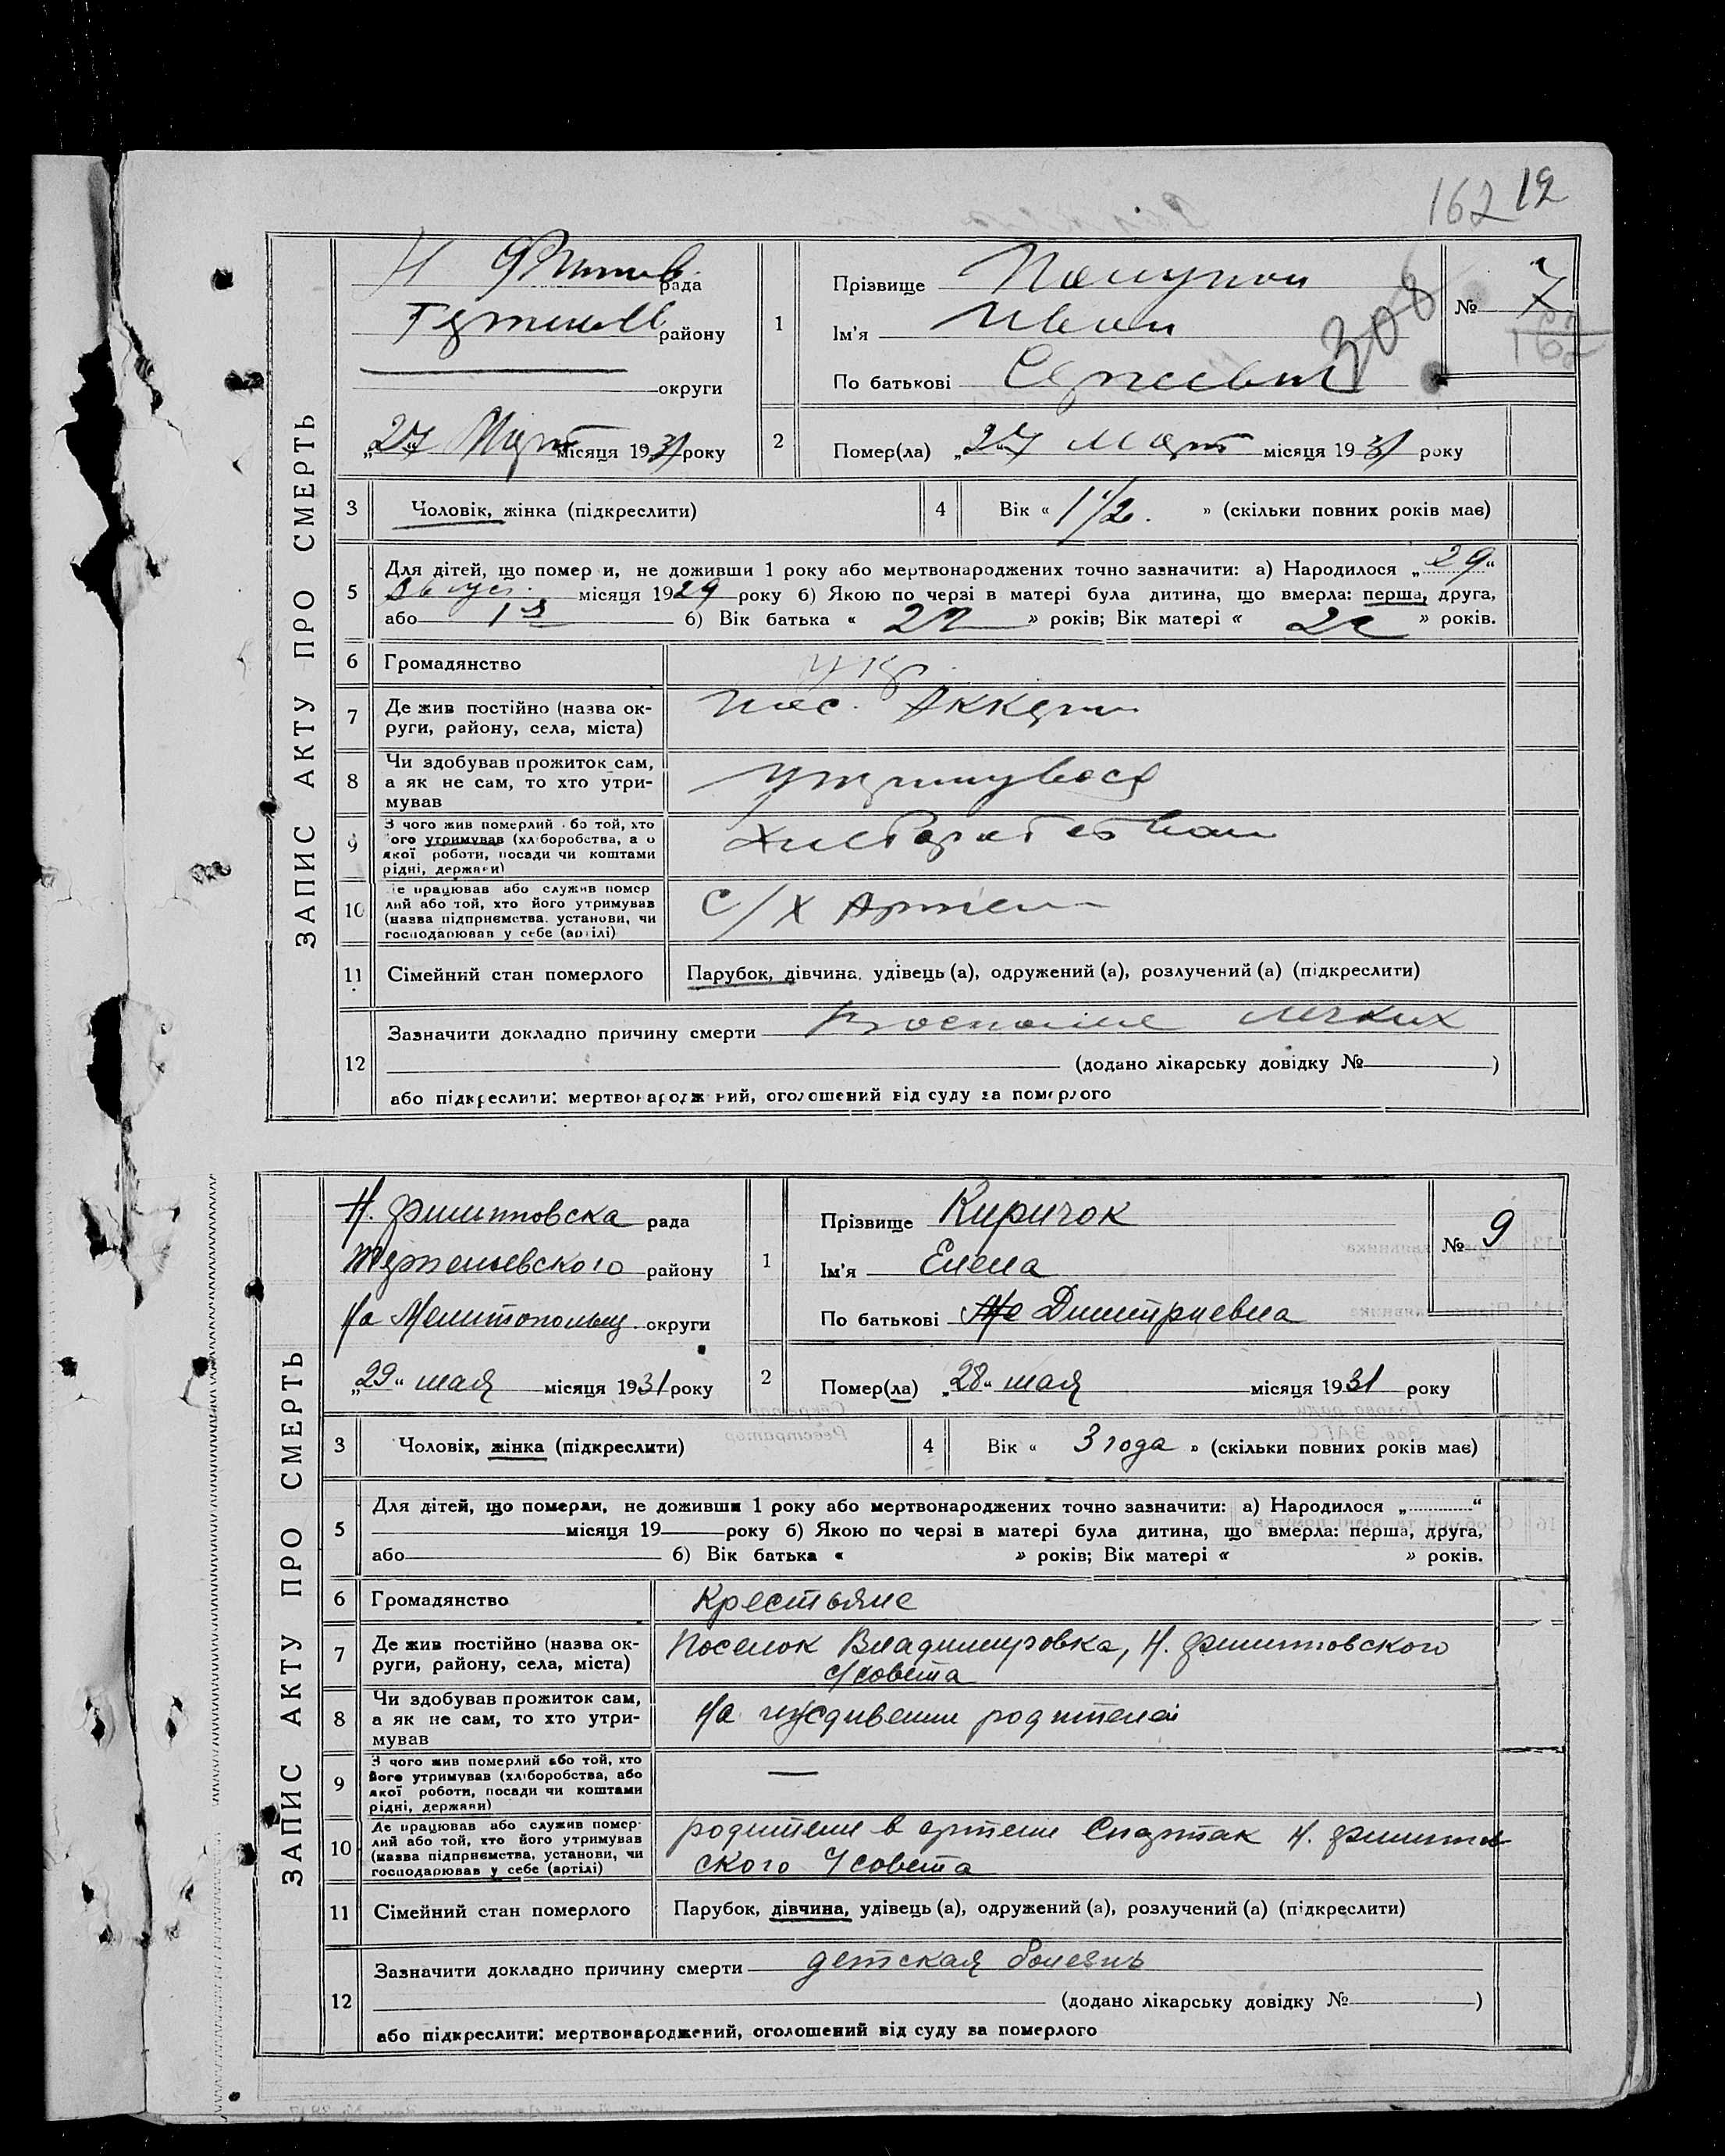 162 12
ЗАПИС АКТУ ПРО СМЕРТЬ
Н рада
району
округи
„27 Март місяця 1931 року
1
Прізвище
Ім'я Иван
По батькові
308
№ 7
162
2
Помер(ла) „27 Март місяця 1931 року
3 Чоловік, жінка (підкреслити)
4 Вік « 1 1/2. » (скільки повних років має)
5 Для дітей, що помер и, не доживши 1 року або мертвонароджених точно зазначити: а) Народилося „29“
місяця 1929 року б) Якою по черзі в матері була дитина, що вмерла: перша, друга,
або б) Вік батька « » років; Вік матері « » років.
6 Громадянство укр.
7 Де жив постійно (назва ок-
руги, району, села, міста)
пос.
8 Чи здобував прожиток сам,
а як не сам, то хто утри-
мував
9 З чого жив померлий або той, хто
його утримував (хліборобства, або
якої роботи, посади чи коштами
рідні, держави)
10 Де працював або служив помер
лий або той, хто його утримував
(назва підприємства, установи, чи
господарював у себе (артілі)
С/Х Артели
11 Сімейний стан померлого
Парубок, дівчина, удівець (а), одружений (а), розлучений (а) (підкреслити)
12 Зазначити докладно причину смерти легких
(додано лікарську довідку № )
або підкреслити: мертвонароджений, оголошений від суду за померлого
ЗАПИС АКТУ ПРО СМЕРТЬ
Н. Филипповска рада
району
На Мелитопольщ. округи
„29“ мая місяця 1931 року
1
Прізвище Киричок
Ім'я Елена
По батькові Дмитриевна
№ 9
2
Помер(ла) „28“ мая місяця 1931 року
3 Чоловік, жінка (підкреслити)
4 Вік « 3 года » (скільки повних років має)
5 Для дітей, що померли, не доживши 1 року або мертвонароджених точно зазначити: а) Народилося „ “
місяця 19 року б) Якою по черзі в матері була дитина, що вмерла: перша, друга,
або б) Вік батька « » років; Вік матері « » років.
6 Громадянство Крестьяне
7 Де жив постійно (назва ок-
руги, району, села, міста)
Поселок Владимировка, Н. Филипповского
с/совета
8 Чи здобував прожиток сам,
а як не сам, то хто утри-
мував
На иждивении родителей
9 З чого жив померлий або той, хто
його утримував (хліборобства, або
якої роботи, посади чи коштами
рідні, держави)
—
10 Де працював або служив помер-
лий або той, хто його утримував
(назва підприємства, установи, чи
господарював у себе (артілі)
родители в артели Спартак Н. Филиппов
ского с/совета
11 Сімейний стан померлого
Парубок, дівчина, удівець (а), одружений (а), розлучений (а) (підкреслити)
12 Зазначити докладно причину смерти детская болезнь
(додано лікарську довідку № )
або підкреслити: мертвонароджений, оголошений від суду за померлого